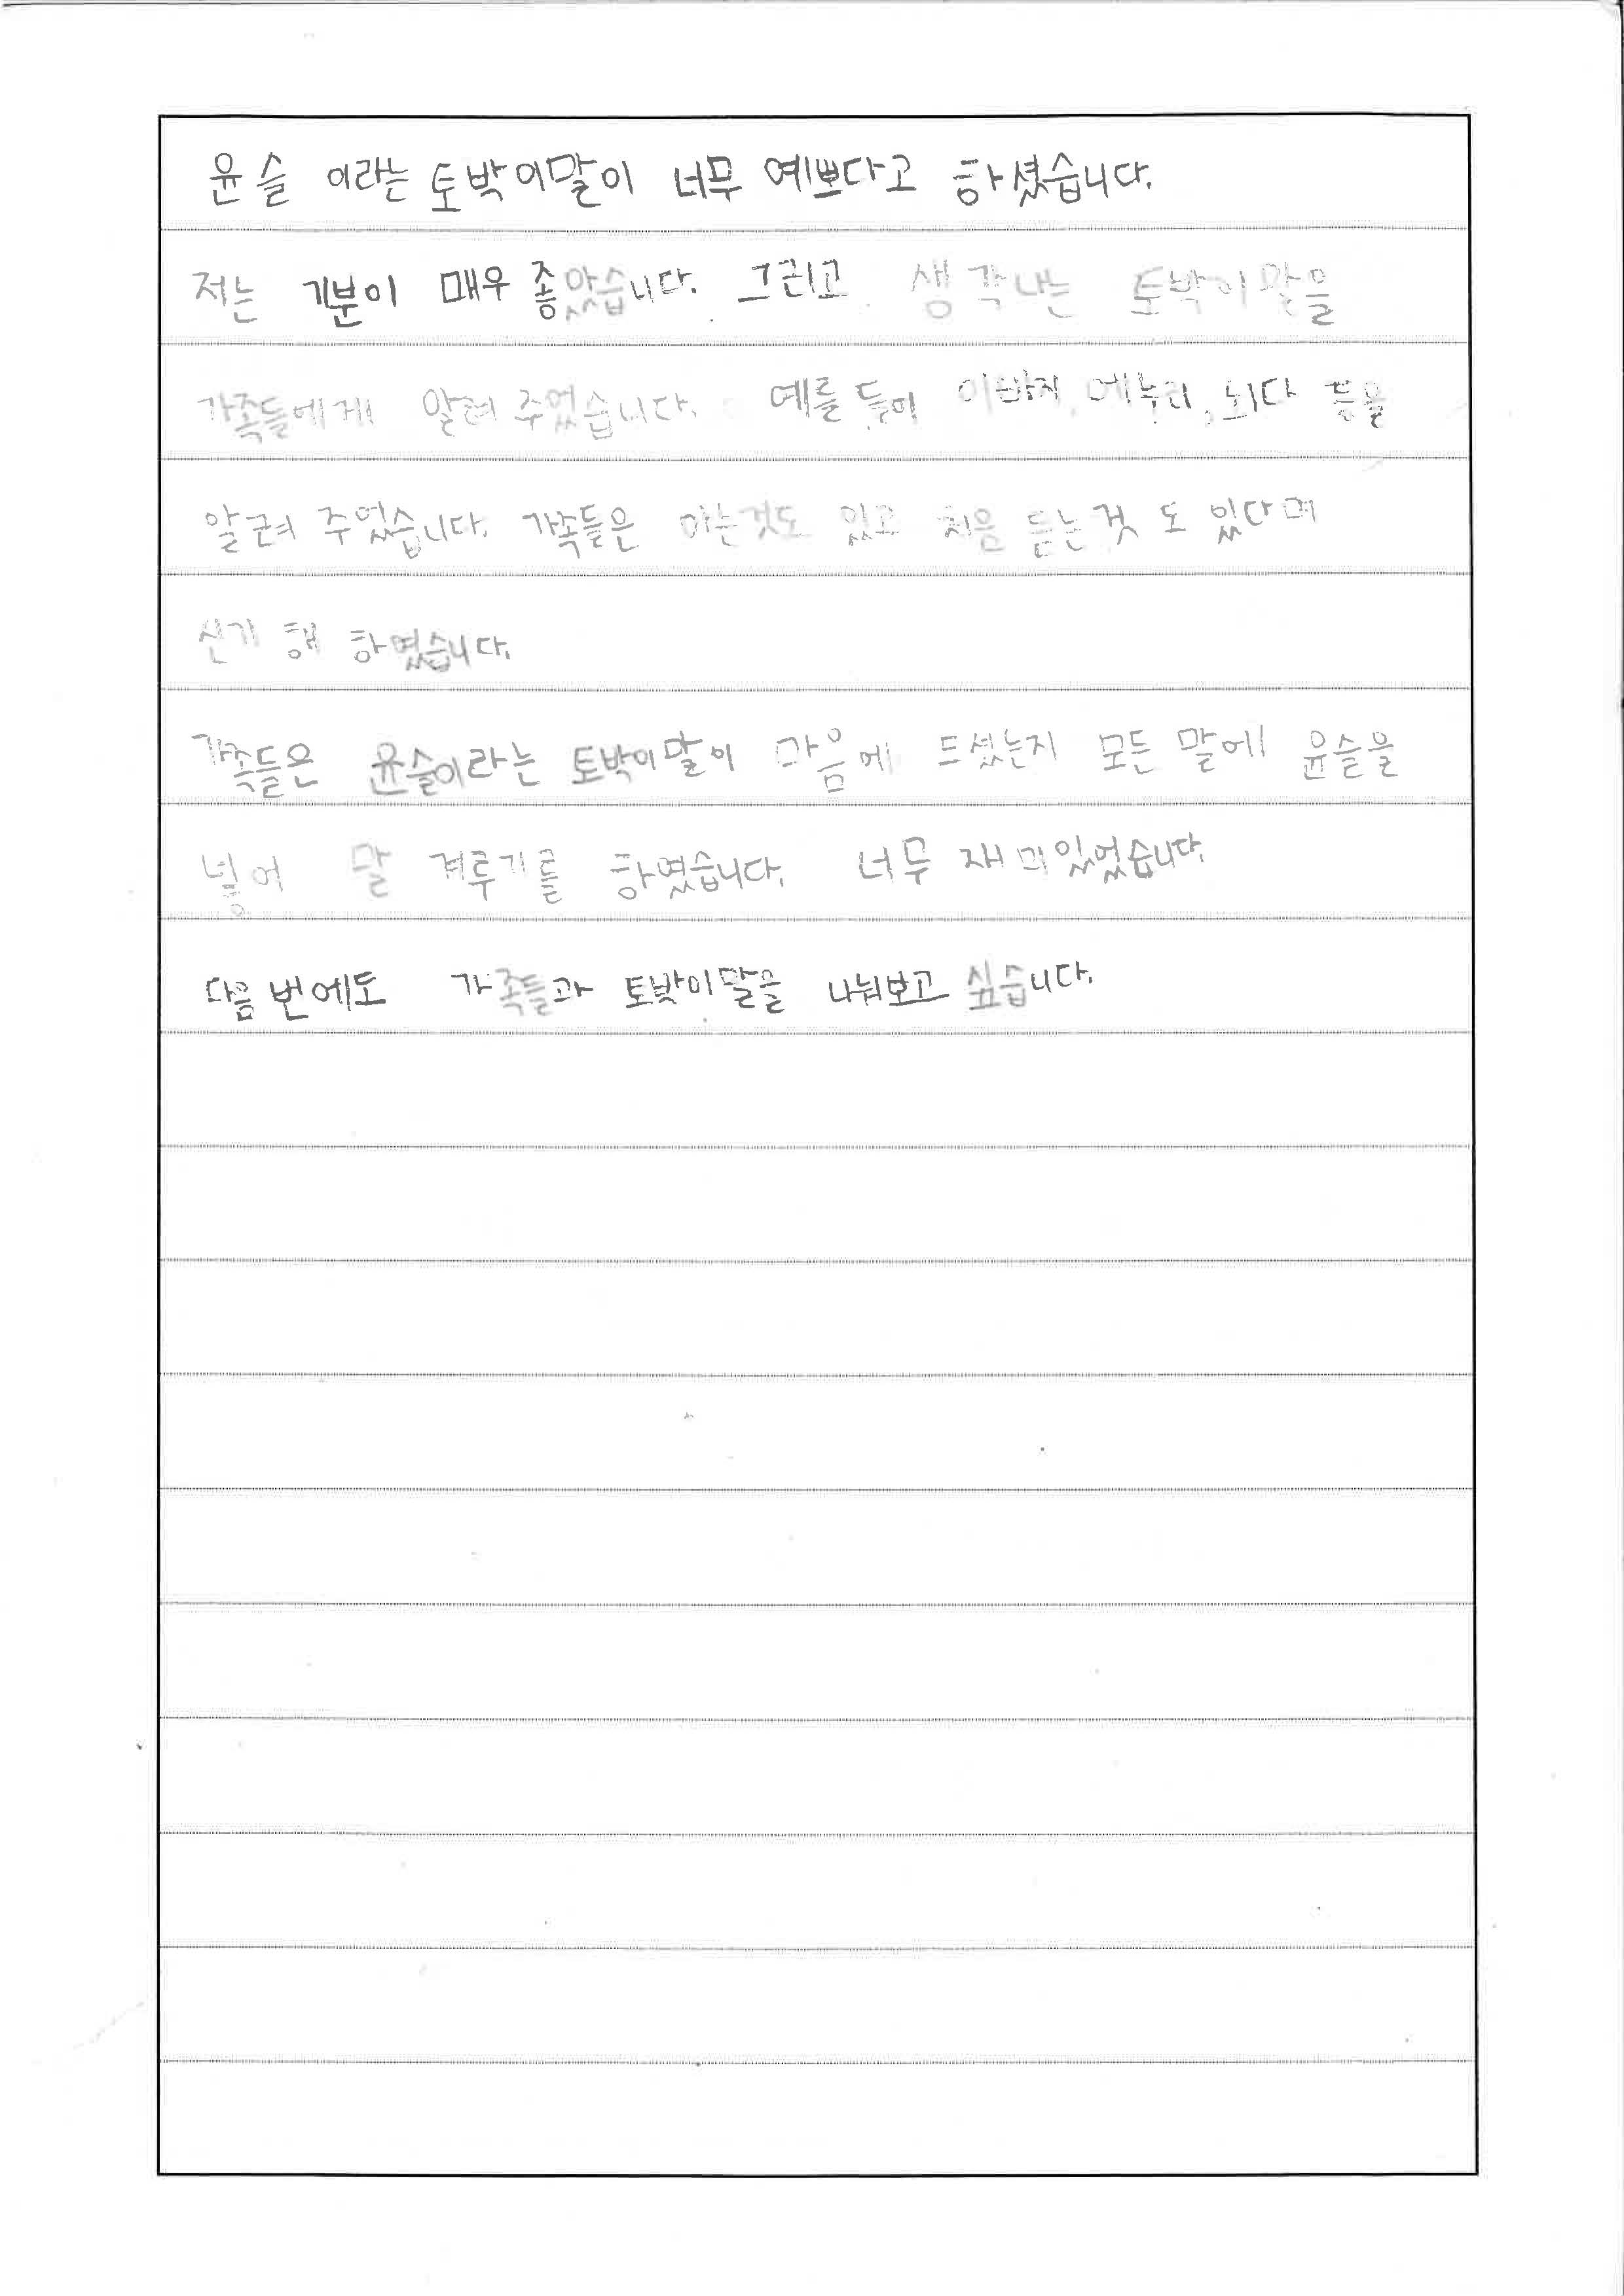 윤슬 이라는 토박이말이 너무 예쁘다고 하셨습니다.
저는 기분이 매우 좋았습니다. 그리고 생각나는 토박이말을
가족들에게 알려 주었습니다. 예를 들어 이바지, 에누리, 뫼다 등을
알려 주었습니다. 가족들은 아는것도 있고 처음 듣는것 도 있다며
신기 해 하였습니다.
가족들은 윤슬이라는 토박이말이 마음에 드셨는지 모든 말에 윤슬을
넣어 말 겨루기를 하였습니다. 너무 재미있었습니다.
다음 번에도 가족들과 토박이말을 나눠보고 싶습니다.